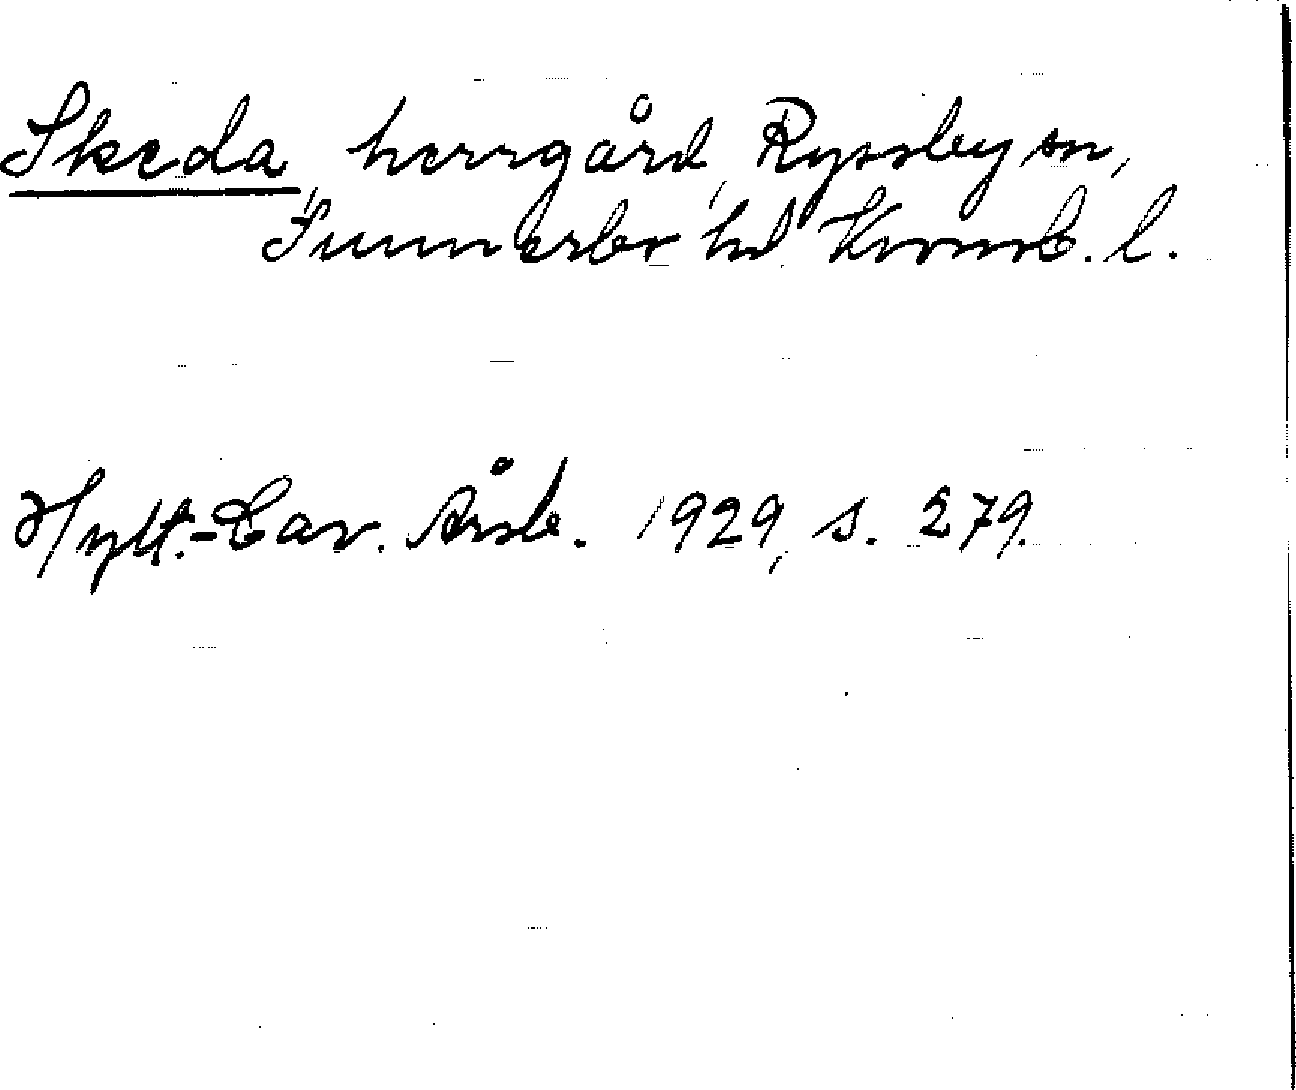 Skeda, herrgård, Ryssby sn,
Sunnerbo hd Kronob. l.
Hylt.-Cav. Årsb. 1929, s. 279.